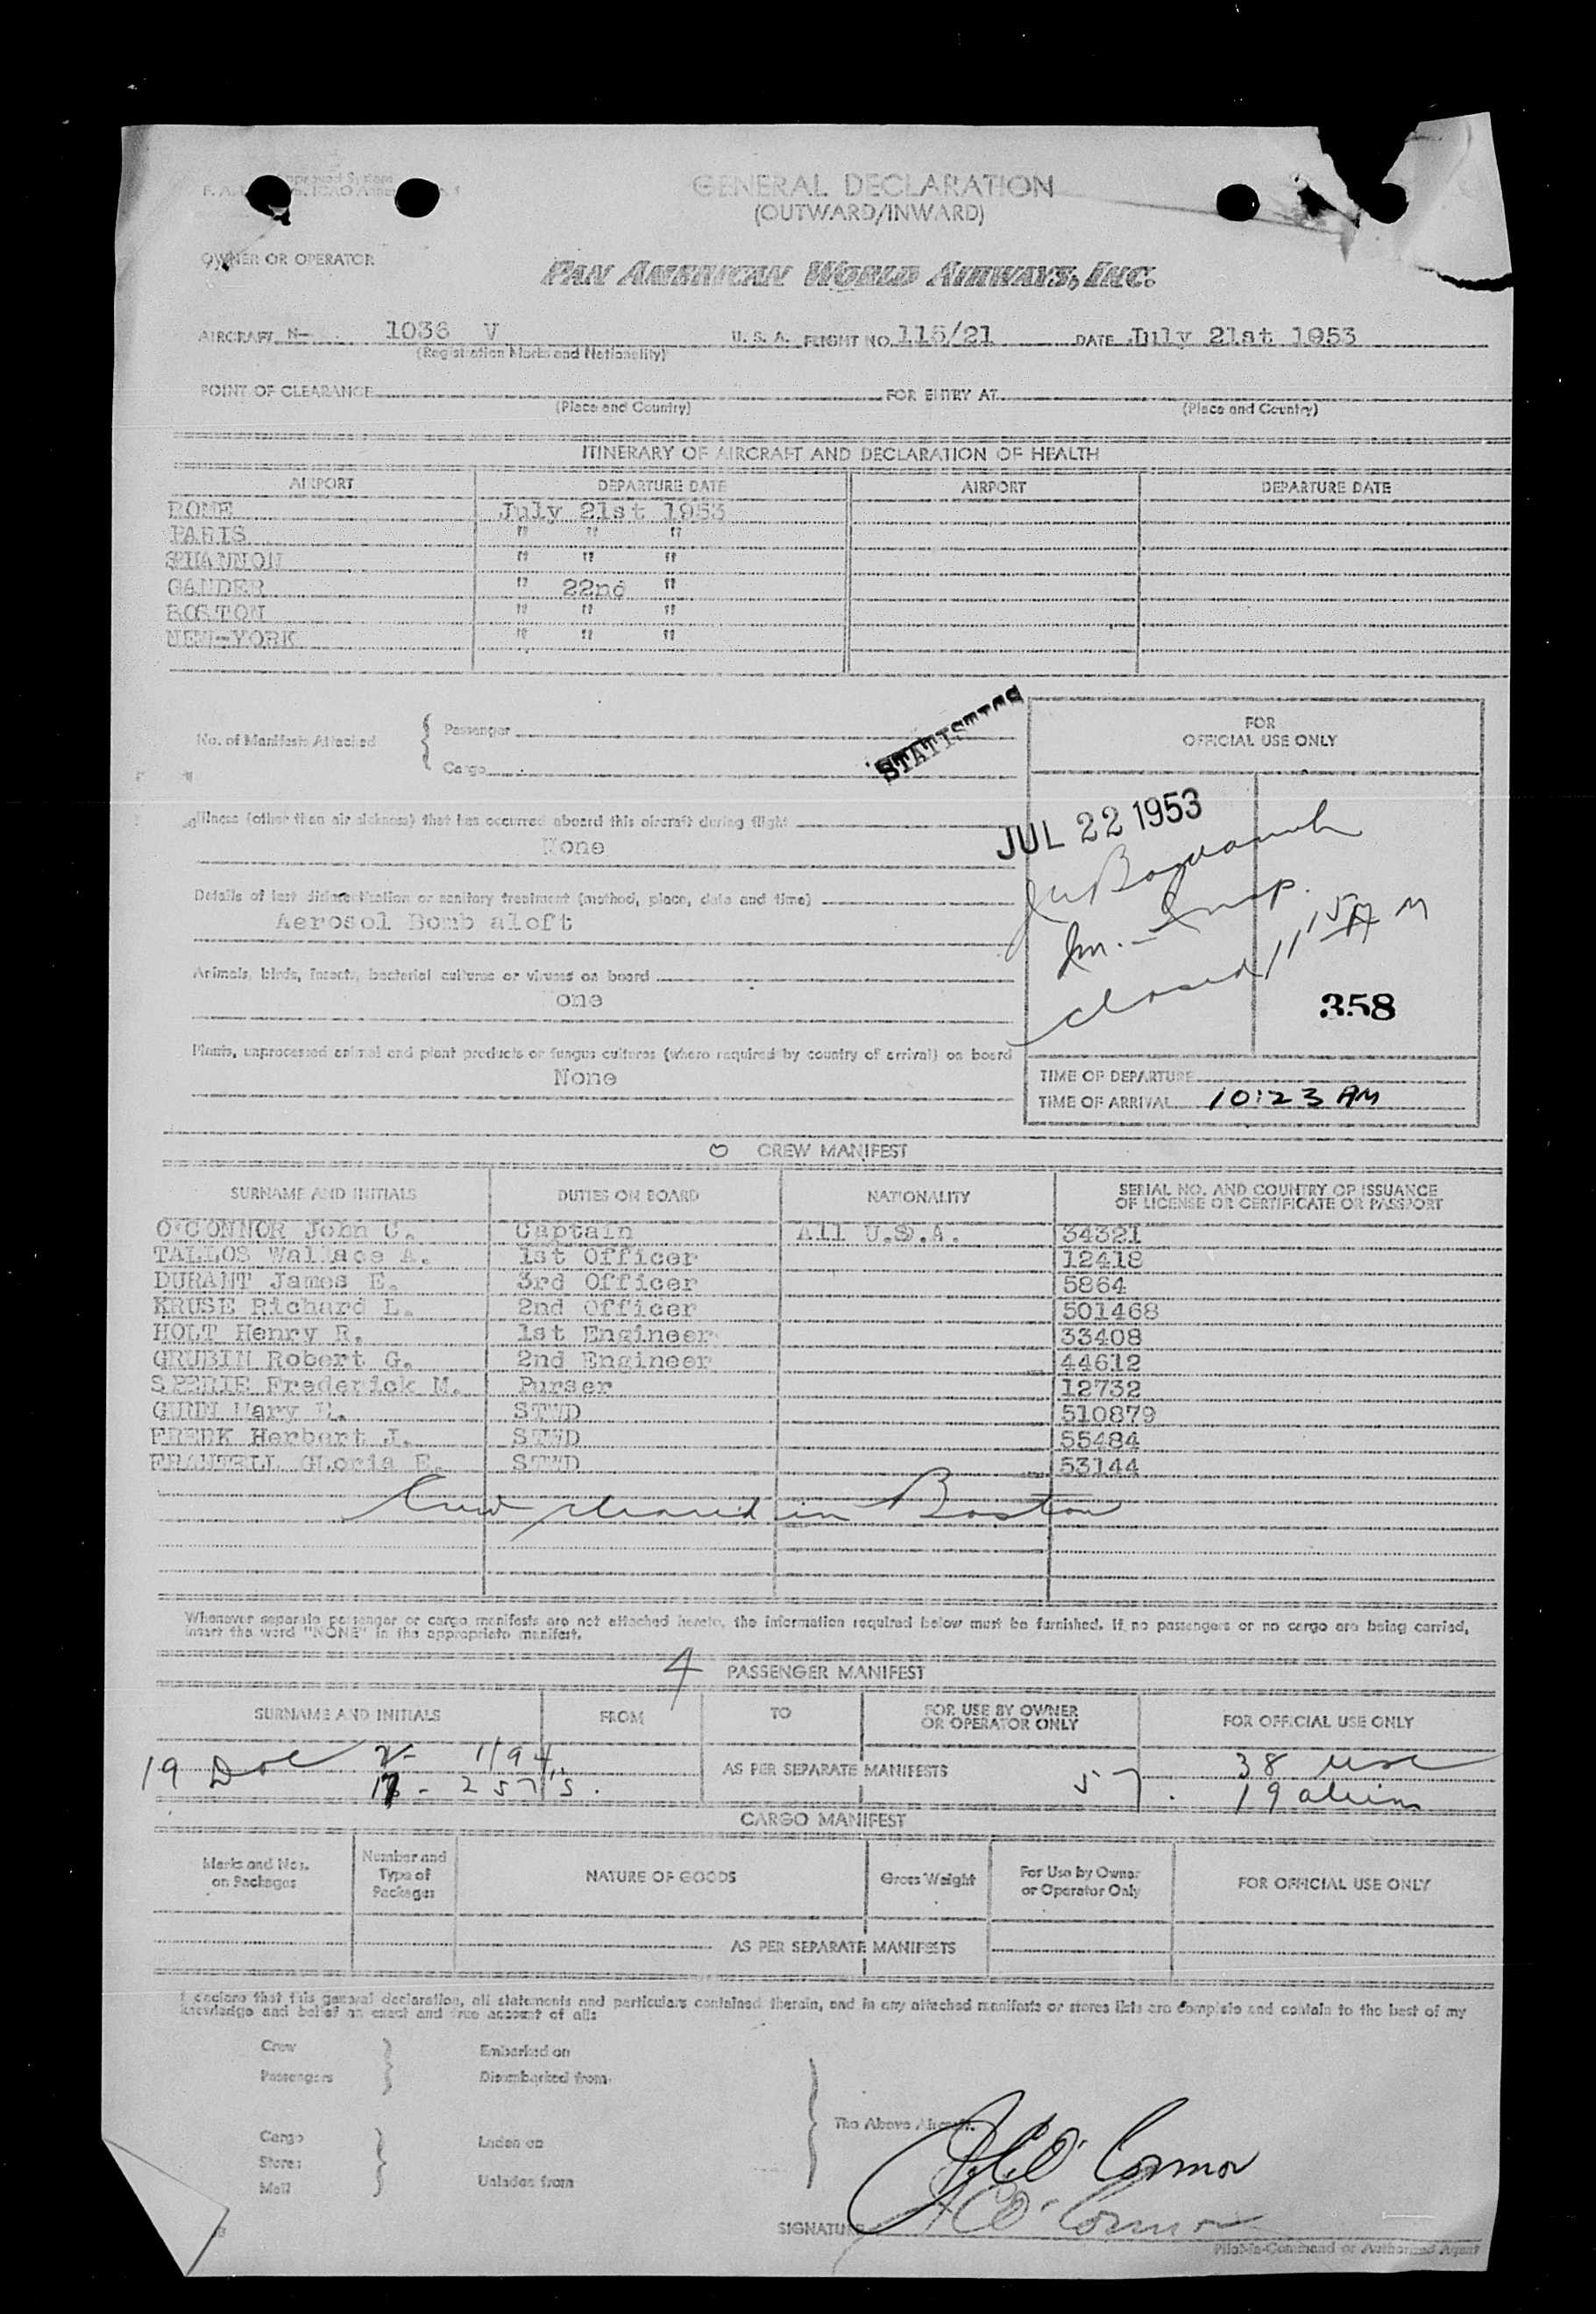 GENERAL DECLARATION
(OUTWARD/INWARD)
OWNER OR OPERATOR
PAN AMERICAN WORLD AIRWAYS, INC.
AIRCRAFT N- 1036 V U. S. A. FLIGHT NO. 115/21 DATE July 21st 1953
(Registration Marks and Nationality)
POINT OF CLEARANCE FOR ENTRY AT
(Place and Country) (Place and Country)
ITINERARY OF AIRCRAFT AND DECLARATION OF HEALTH
AIRPORT DEPARTURE DATE AIRPORT DEPARTURE DATE
ROME July 21st 1953
PARIS " " "
SHANNON " " "
GANDER " 22nd "
BOSTON " " "
NEW-YORK " " "
STATISTICS
No. of Manifests Attached { Passenger
Cargo
FOR
OFFICIAL USE ONLY
JUL 22 1953
Im. Insp.
closed 11 15 A M
358
Illness (other than air sickness) that has occurred aboard this aircraft during flight
None
Details of last disinsectization or sanitary treatment (method, place, date and time)
Aerosol Bomb aloft
Animals, birds, insects, bacterial cultures or viruses on board
one
Plants, unprocessed animal and plant products or fungus cultures (where required by country of arrival) on board
None
TIME OF DEPARTURE
TIME OF ARRIVAL 10:23 AM
CREW MANIFEST
SURNAME AND INITIALS DUTIES ON BOARD NATIONALITY SERIAL NO. AND COUNTRY OF ISSUANCE
OF LICENSE OR CERTIFICATE OR PASSPORT
O'CONNOR John C. Captain All U.S.A. 34321
TALLOS Wallace A. 1st Officer 12418
DURANT James E. 3rd Officer 5864
KRUSE Richard L. 2nd Officer 501468
HOLT Henry R. 1st Engineer 33408
GRUBIN Robert G. 2nd Engineer 44612
SPERIE Frederick M. Purser 12732
GUNN Mary STWD 510879
FRENK Herbert J. STWD 55484
FRANTELL GLoria E. STWD 53144
Crew cleared in Boston
Whenever separate passenger or cargo manifests are not attached hereto, the information required below must be furnished. If no passengers or no cargo are being carried,
insert the word "NONE" in the appropriate manifest.
4 PASSENGER MANIFEST
SURNAME AND INITIALS FROM TO FOR USE BY OWNER
OR OPERATOR ONLY FOR OFFICIAL USE ONLY
19 1194 38 usc
AS PER SEPARATE MANIFESTS
17 - 257 s. 57. 19 aliens
CARGO MANIFEST
Marks and Nos.
on Packages Number and
Type of
Packages NATURE OF GOODS Gross Weight For Use by Owner
or Operator Only FOR OFFICIAL USE ONLY
AS PER SEPARATE MANIFESTS
I declare that this general declaration, all statements and particulars contained therein, and in any attached manifests or stores lists are complete and contain to the best of my
knowledge and belief an exact and true account of all:
Crew Embarked on
Passengers Disembarked from
The Above Aircraft.
Cargo Laden on
Stores
Mail Unladen from
J.C. O'Connor
SIGNATURE J C O'Connor
Pilot-in-Command or Authorized Agent